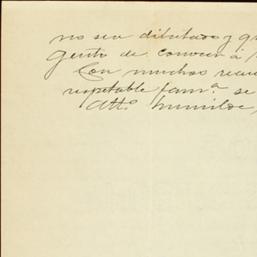 no sea dilatado y qu
gusto de conocer á
Con muchos recue
respetable fam.ª se
Atto. humilde,